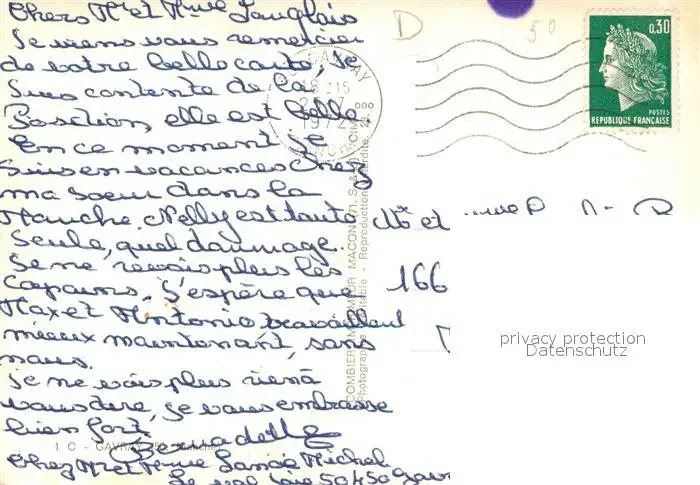 Chers Mr et Mme Langlais
Je viens vous remercier
de votre belle carte, Je
suis contente de la
Position, elle est belle
En ce moment je
suis en vacances chez
ma soeur dans la
Manche, Nelly est toute
seule, quel dommage.
Je ne revois plus les
Copains. J'espère que
Max et Antonio travaillent
mieux maintenant, sans
nous.
Je ne vois plus rien à
vous dire, je vous embrasse
bien fort.
Bernadette
1 C - GAVRAY
Chez Mr et Mme Michel
50450
D
50
0,30
POSTES
REPUBLIQUE FRANÇAISE
GAVRAY
1972
MANCHE
COMBIER IMPRIMEUR MACON
Reproduction interdite
Mr et
166
privacy protection
Datenschutz